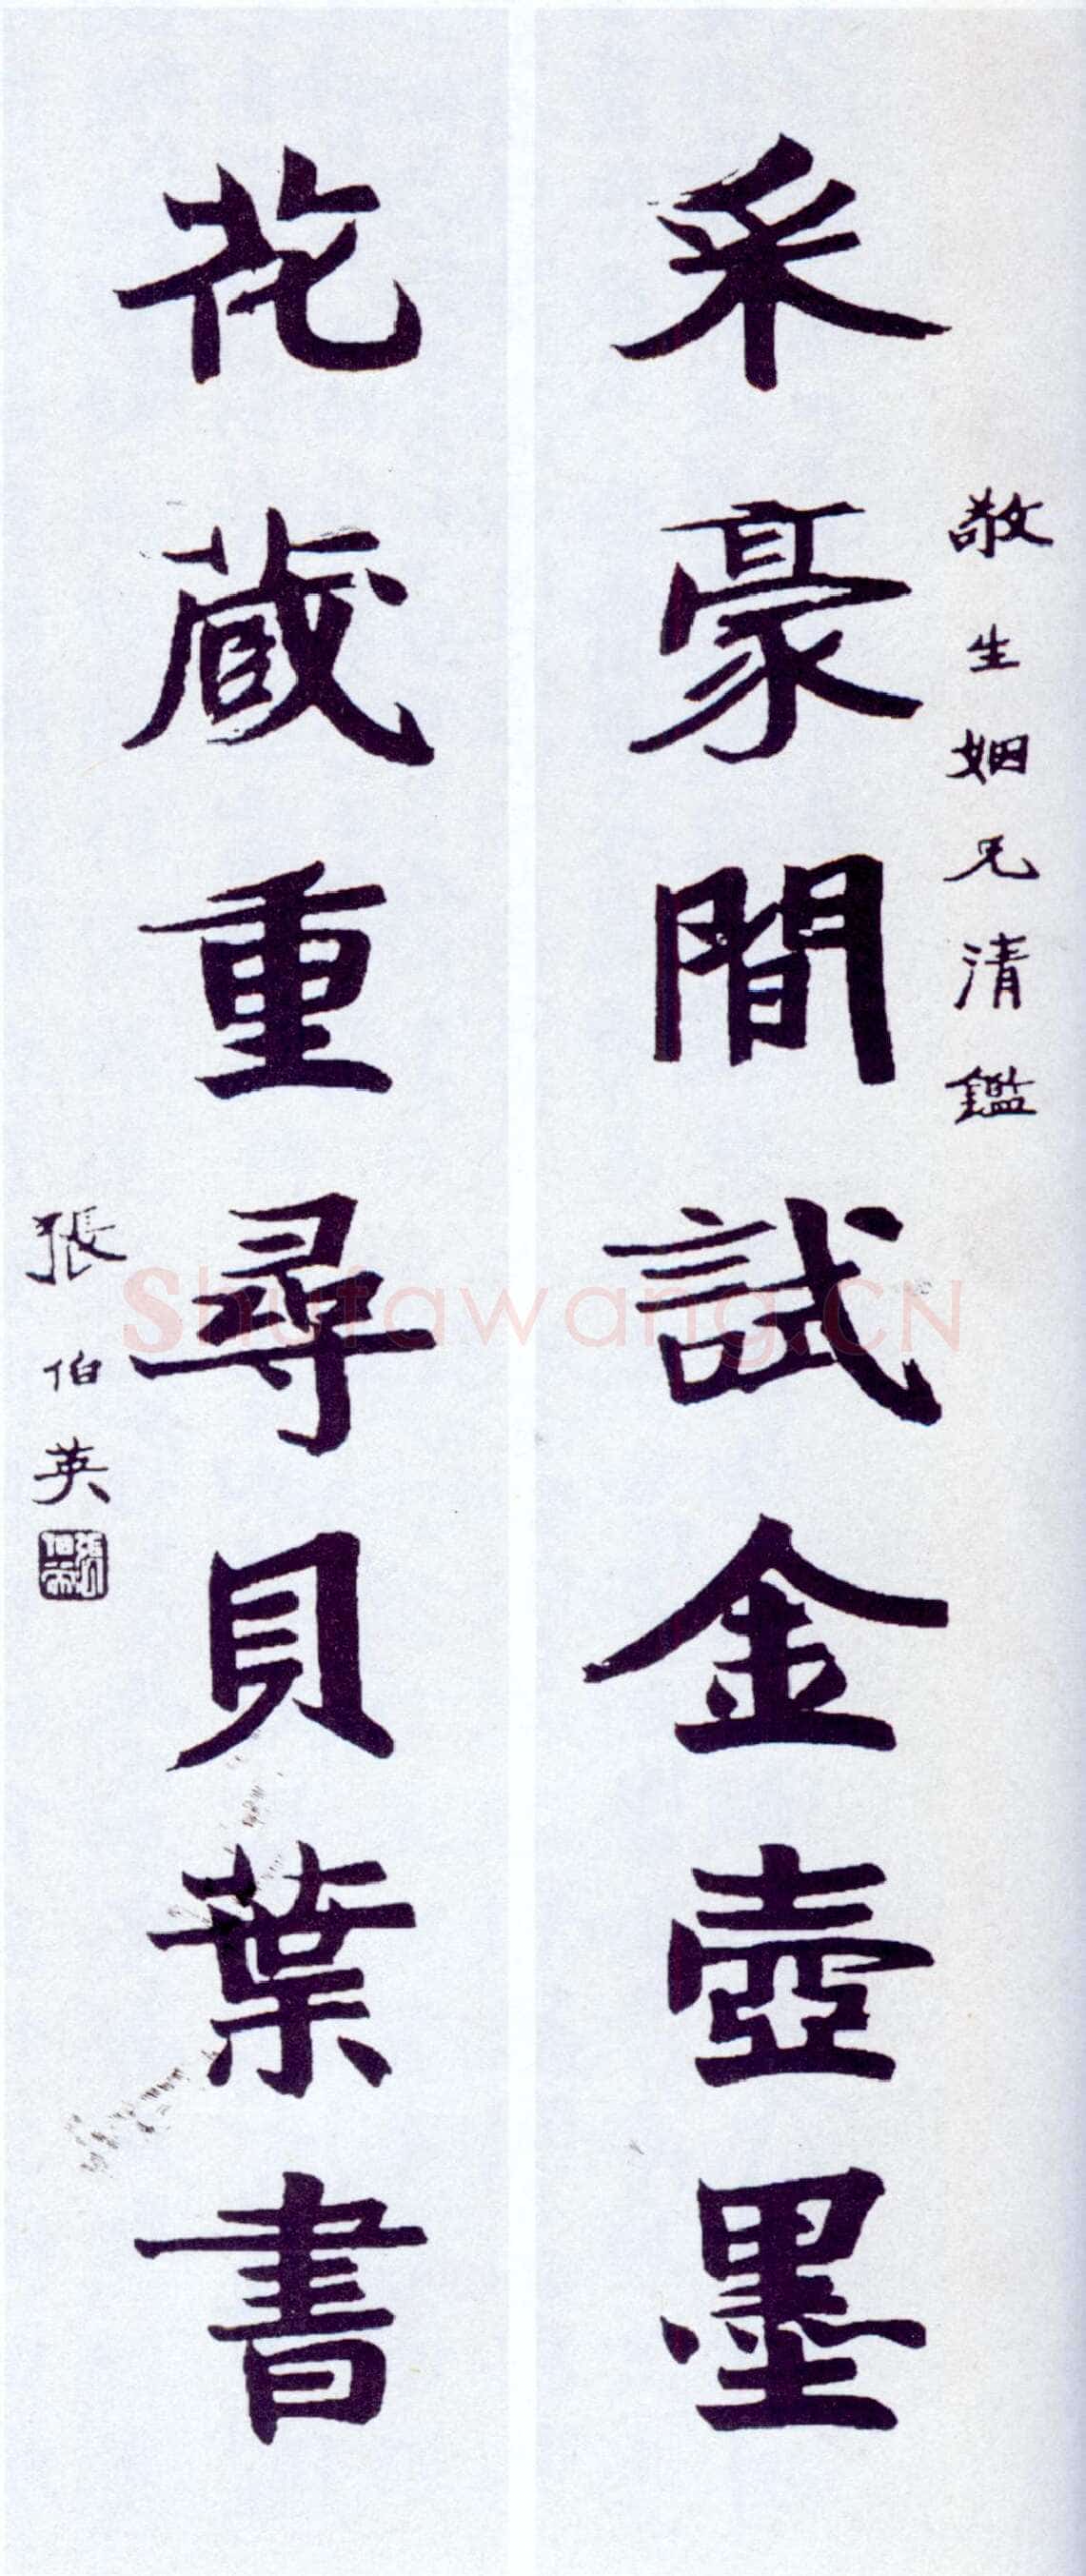 敬生姻兄清鑑
采豪間試金壺墨
花蔵重尋貝葉書
張伯英
Shufawang.CN